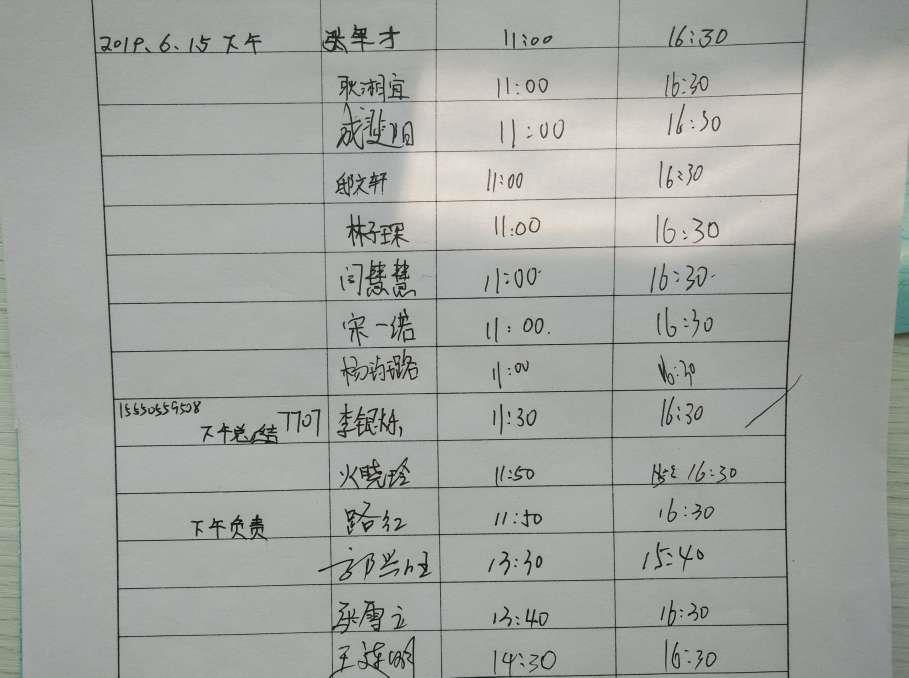 2019.6.15下午 张军才 11:00 16:30
耿湘宜 11:00 16:30
成斐 11:00 16:30
邸文轩 11:00 16:30
林子琛 11:00 16:30
闫慧慧 11:00 16:30
宋一诺 11:00. 16:30
杨璐 11:00 16:30
15550559508
下午总结 7707 李银 11:30 16:30
火晓玲 11:50 16:30
下午负责 路红 11:50 16:30
郭兴旺 13:30 15:40
张雪立 13:40 16:30
王 明 14:30 16:30